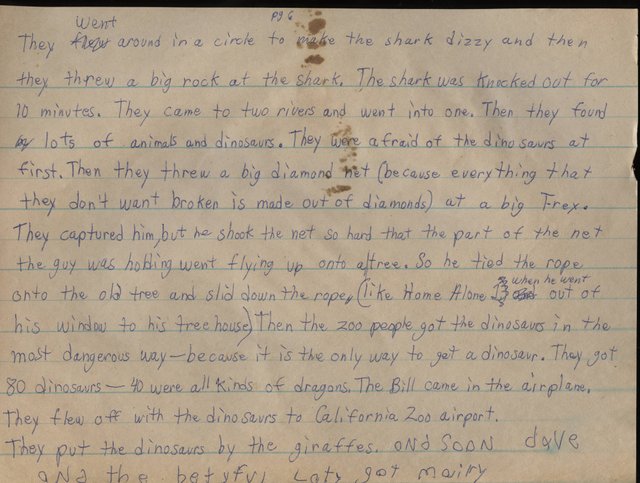 pg 6
They went around in a circle to make the shark dizzy and then
they threw a big rock at the shark. The shark was knocked out for
10 minutes. They came to two rivers and went into one. Then they found
lots of animals and dinosaurs. They were afraid of the dinosaurs at
first. Then they threw a big diamond net (because everything that
they don't want broken is made out of diamonds) at a big T-rex.
They captured him, but he shook the net so hard that the part of the net
the guy was holding went flying up onto a tree. So he tied the rope
onto the old tree and slid down the rope, (like Home Alone 3 when he went out of
his window to his tree house) Then the zoo people got the dinosaurs in the
most dangerous way—because it is the only way to get a dinosaur. They got
80 dinosaurs—40 were all kinds of dragons. The Bill came in the airplane.
They flew off with the dinosaurs to California Zoo airport.
They put the dinosaurs by the giraffes. and soon dave
and the betyful Lady got